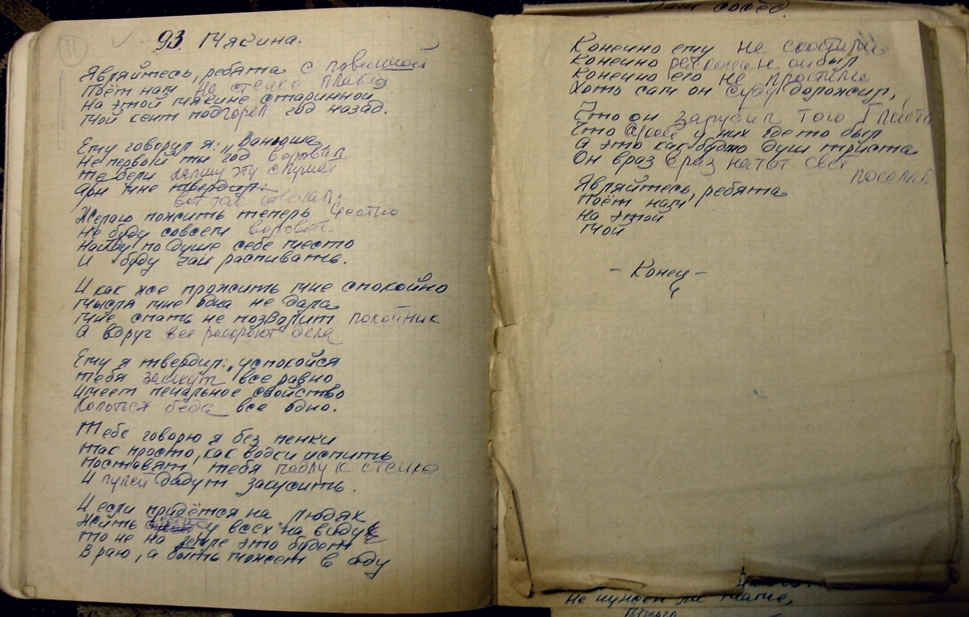 11
93. Мякина.
Являйтесь, ребята с повинной
Поёт нам на стенке плакат
На этой мякине старинной
Мой кент подгорел год назад.
Ему говорил я: „Ванюша
Не первый ты год воровал
Не бери лапшу эту слушать
При мне твердил:
вот так отвечал:
Желаю пожить теперь честно
Не буду совсем воровать
Найду по душе себе место
И буду чаи распивать.
И как же прожить мне спокойно
Мысля мне одна не дала
Мне спать не позволит покойник
А вдруг все раскроют дела
Ему я твердил: „успокойся
Тебя заметут все равно
Имеет печальное свойство
Колоться беда все одно.
Тебе говорю я без пенки
Так просто, как водки испить
Поставят тебя падлу к стенке
И пулей дадут закусить.
И если придётся на людях
Жить у всех на виду
То не на земле это будет
В раю, а быть может в аду
Конечно ему не скостили
Конечно он был
Конечно его не простили
Хоть сам он суду доложил,
Что он зарубил того
Что у них где то был
А это как будто душ триста
Он враз на тот свет
Являйтесь, ребята
Поёт нам
На этой
Мой
- Конец -